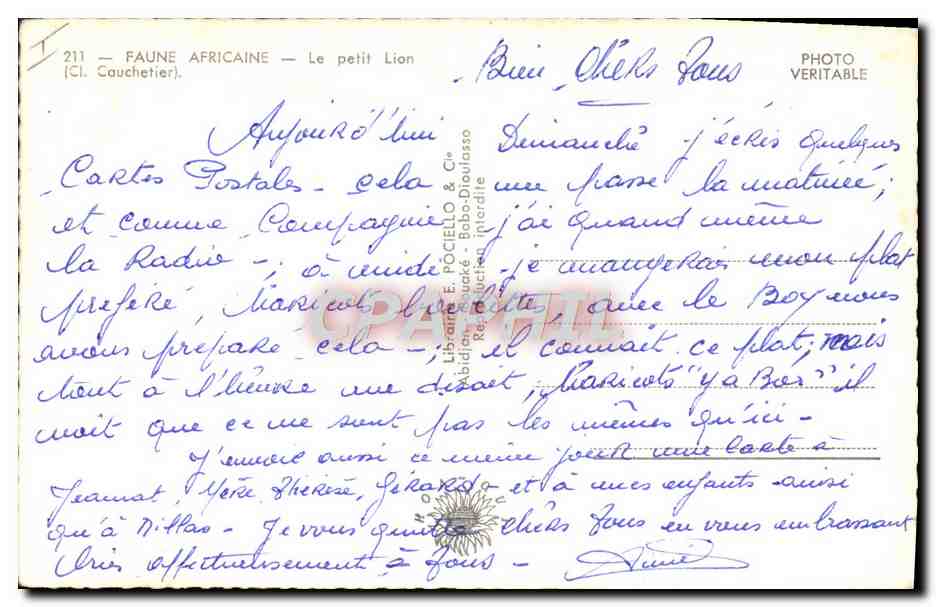 211 — FAUNE AFRICAINE — Le petit Lion
(Cl. Cauchetier).
PHOTO
VERITABLE
Bien Chers Tous
Aujourd'hui Dimanche j'écris quelques
Cartes Postales - cela me passe la matinée;
et comme Compagnie j'ai quand même
la Radio -; à midi je mangerais mon plat
préféré, Haricots, avec le Boy nous
avons préparé cela -; il connait ce plat, mais
tout à l'heure me disait, Haricots "y a Bon" il
voit que ce ne sont pas les mêmes qu'ici -
J'envoie aussi ce même jour une Carte à
Jeannot, Mère Thérèse, Gérard - et à mes enfants ainsi
qu'à - Je vous quitte chers Tous en vous embrassant
très affectueusement à Tous -
Librairie E. POCIELLO & Cie
Abidjan - Bouaké - Bobo-Dioulasso
Reproduction interdite
CPAPHIL